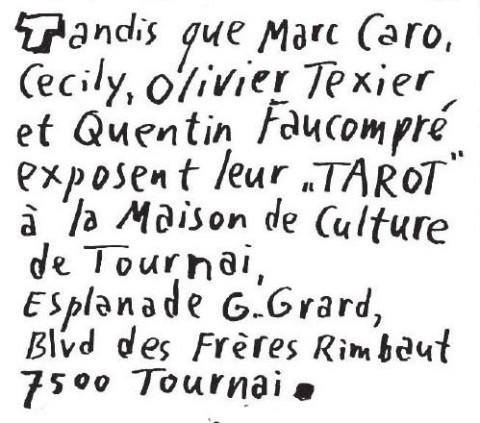 Tandis que Marc Caro,
Cecily, Olivier Texier
et Quentin Faucompré
exposent leur „TAROT"
à la Maison de Culture
de Tournai,
Esplanade G. Grard,
Blvd des Frères Rimbaut
7500 Tournai.